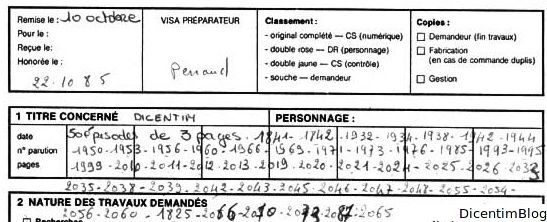 Remise le : 10 octobre
Pour le :
Reçue le:
Honorée le :
22.10.85
VISA PRÉPARATEUR
Perraud
Classement :
- original complété — CS (numérique)
- double rose — DR (personnage)
- double jaune — CS (contrôle)
- souche — demandeur
Copies :
Demandeur (fin travaux)
Fabrication
(en cas de commande duplis)
Gestion
1 TITRE CONCERNÉ DICENTIM
PERSONNAGE :
date
n° parution
pages
50 épisodes de 3 pages. 1841-1842-1932-1934-1938-1942-1944
1950-1953-1956-1960-1966-1969-1971-1973-1976-1985-1993-1995
1999-2010-2011-2012-2013-2019-2020-2021-2024-2025-2026
2035-2038-2039-2042-2043-2045-2046-2047-2048-2055-2054-
2 NATURE DES TRAVAUX DEMANDÉS
2056-2060-1825-2065
DicentimBlog